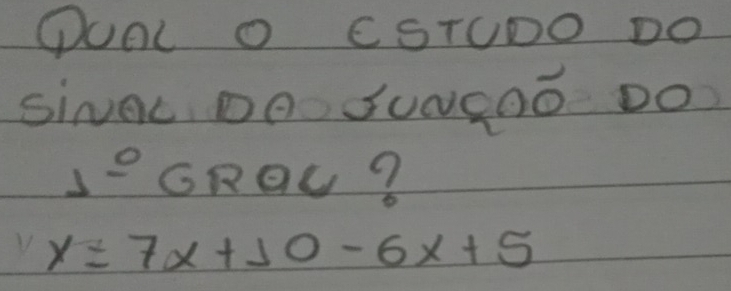 QUAL O ESTUDO DO
SINAL DA FUNÇAÕ DO
1º GRAU?
y = 7x + 10 - 6x + 5